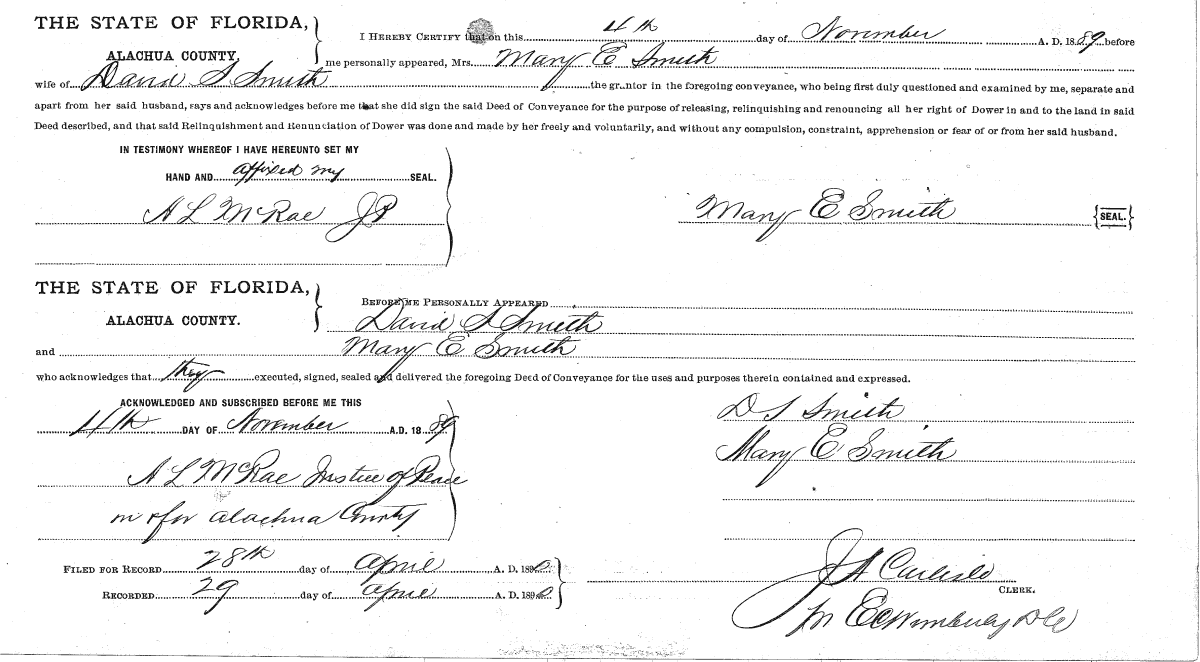 THE STATE OF FLORIDA,
ALACHUA COUNTY.
I HEREBY CERTIFY that on this 4th day of November A. D. 1889 before
me personally appeared, Mrs. Mary E Smith
wife of David S Smith the gr ntor in the foregoing conveyance, who being first duly questioned and examined by me, separate and
apart from her said husband, says and acknowledges before me that she did sign the said Deed of Conveyance for the purpose of releasing, relinquishing and renouncing all her right of Dower in and to the land in said
Deed described, and that said Relinquishment and Renunciation of Dower was done and made by her freely and voluntarily, and without any compulsion, constraint, apprehension or fear of or from her said husband.
IN TESTIMONY WHEREOF I HAVE HEREUNTO SET MY
HAND AND affixed my SEAL.
A L McRae JP
Mary E Smith {SEAL.}
THE STATE OF FLORIDA,
ALACHUA COUNTY.
BEFORE ME PERSONALLY APPEARED
David S Smith
and Mary E Smith
who acknowledges that they executed, signed, sealed and delivered the foregoing Deed of Conveyance for the uses and purposes therein contained and expressed.
ACKNOWLEDGED AND SUBSCRIBED BEFORE ME THIS
4th DAY OF November A.D. 1889
A L McRae Justice of Peace
in & for Alachua County
D S Smith
Mary E Smith
FILED FOR RECORD 28th day of April A. D. 1890
RECORDED 29 day of April A. D. 1890
J A Carlisle CLERK.
pr E C Wimberley DC